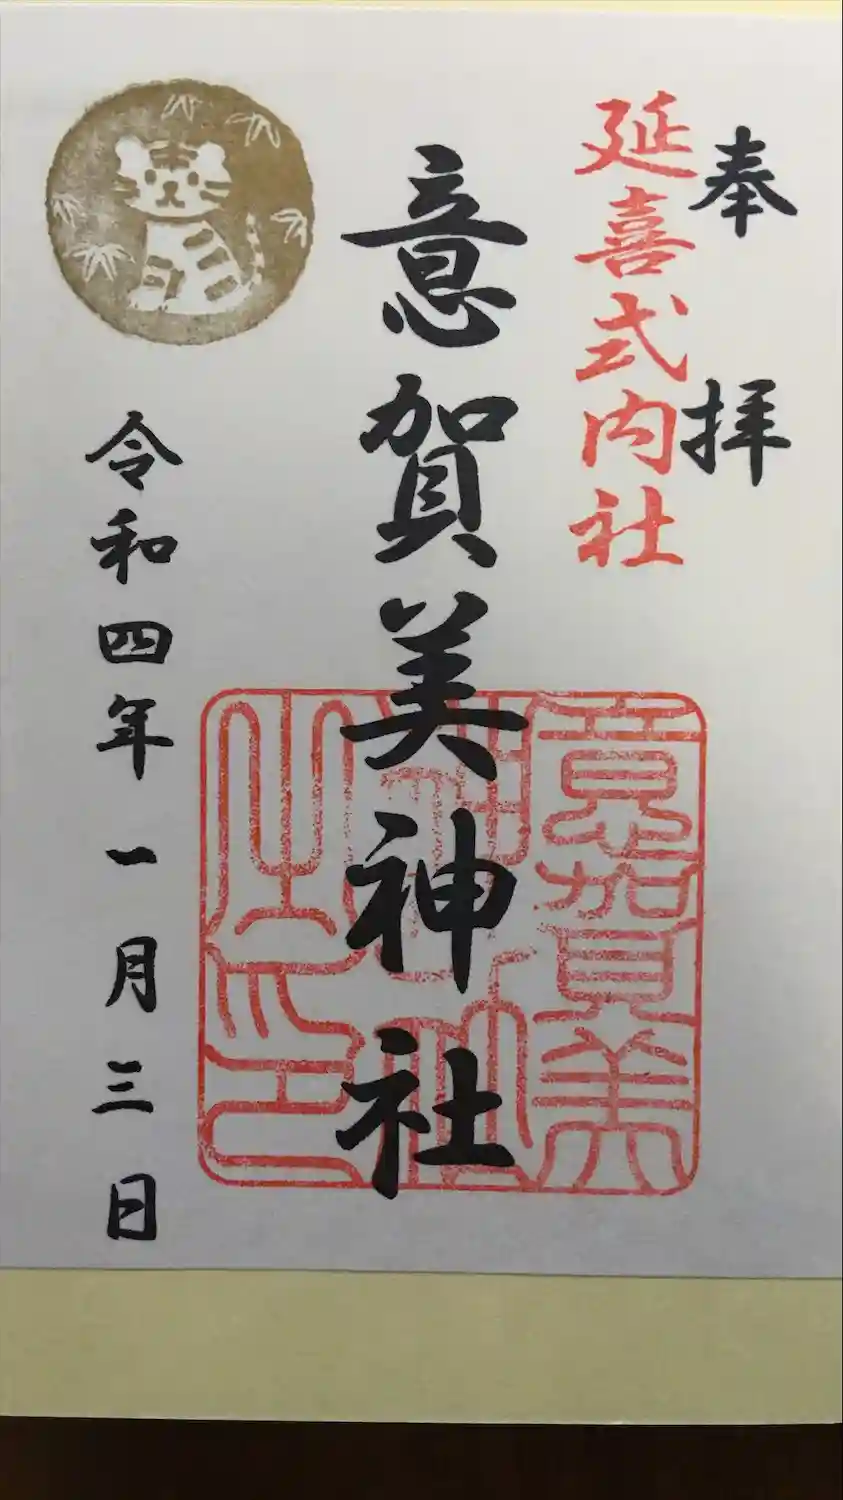 奉拝
延喜式内社
意賀美神社
意賀美
神社
之印
令和四年一月三日